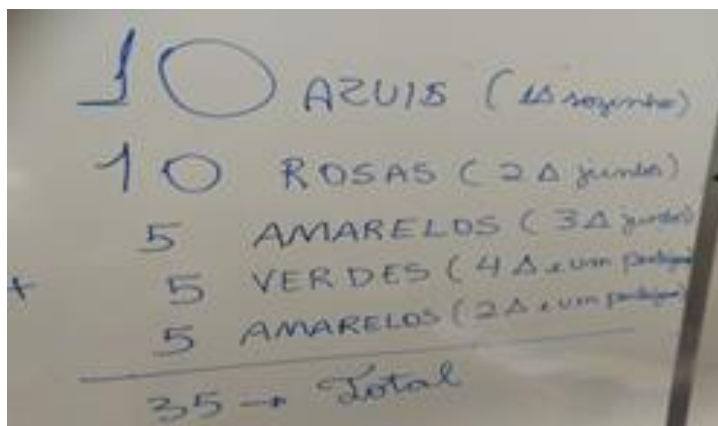 10 AZUIS (1Δ sozinho)
10 ROSAS (2Δ juntos)
5 AMARELOS (3Δ juntos)
+ 5 VERDES (4Δ e um pentágono)
5 AMARELOS (2Δ e um pentágono)
35 → Total